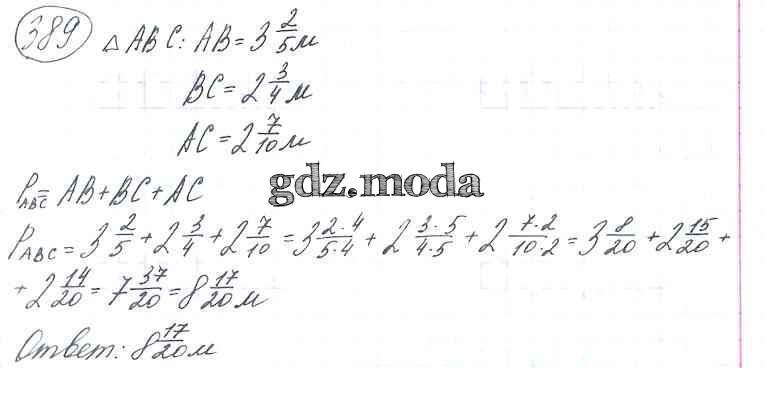 389 △ABC: AB = 3 2/5 м
BC = 2 3/4 м
AC = 2 7/10 м
P_ABC = AB + BC + AC
gdz.moda
P_ABC = 3 2/5 + 2 3/4 + 2 7/10 = 3 2·4/5·4 + 2 3·5/4·5 + 2 7·2/10·2 = 3 8/20 + 2 15/20 +
+ 2 14/20 = 7 37/20 = 8 17/20 м
Ответ: 8 17/20 м